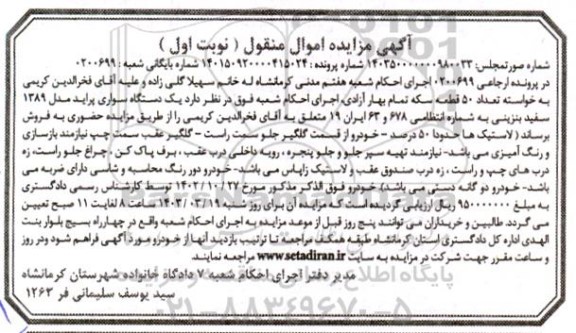 آگهی مزایده اموال منقول ( نوبت اول )
شماره صورتمجلس: ۱۴۰۳۵۰۰۰۰۰۰۰۹۸۰۰۳۳ شماره پرونده : ۱۴۰۱۵۰۹۲۰۰۰۰۴۱۵۰۲۴ شماره بایگانی شعبه : ۰۲۰۰۶۹۹
در پرونده ارجاعی ۰۲۰۰۶۹۹ اجرای احکام شعبه هفتم مدنی کرمانشاه له خانم سهیلا گلی زاده و علیه آقای فخرالدین کریمی
به خواسته تعداد ۵۰ قطعه سکه تمام بهار آزادی، اجرای احکام شعبه فوق در نظر دارد یک دستگاه سواری پراید مدل ۱۳۸۹
سفید بنزینی به شماره انتظامی ۶۷۸ و ۶۳ ایران ۱۹ متعلق به آقای فخرالدین کریمی را از طریق مزایده حضوری به فروش
برساند ( لاستیک ها حدودا ۵۰ درصد - خودرو از قسمت گلگیر جلو سمت راست - گلگیر عقب سمت چپ نیازمند بازسازی
و رنگ آمیزی می باشد- نیازمند تهیه سپر جلو و جلو پنجره ، رویه داخلی درب عقب ، برف پاک کن ، چراغ جلو راست، زه
درب های چپ و راست ، زه درب صندوق عقب و لاستیک زاپاس می باشد- خودرو دور رنگ محاسبه و شاسی دارای ضربه می
باشد- خودرو دو گانه دستی می باشد) خودرو فوق الذکر مذکور مورخ ۱۴۰۲/۱۱/۲۷ توسط کارشناس رسمی دادگستری
به مبلغ ۹۵۰۰۰۰۰۰۰ ریال ارزیابی گردیده است که مزایده آن برای روز شنبه ۱۴۰۳/۰۳/۱۹ ساعت ۸ لغایت ۱۱ صبح تعیین
می گردد. طالبین و خریداران می توانند پنج روز قبل از موعد مزایده به اجرای احکام شعبه واقع در چهارراه بسیج بلوار بنت
الهدی اداره کل دادگستری استان کرمانشاه طبقه همکف مراجعه تا ترتیب بازدید آنها از خودرو مورد آگهی فراهم شود ودر روز
و ساعت مقرر جهت شرکت در مزایده به سایت www.setadiran.ir مراجعه نمایند.
مدیر دفتر اجرای احکام شعبه ۷ دادگاه خانواده شهرستان کرمانشاه
سید یوسف سلیمانی فر ۱۲۶۳
۰۲۱-۸۸۳۴۹۶۷۰-۵